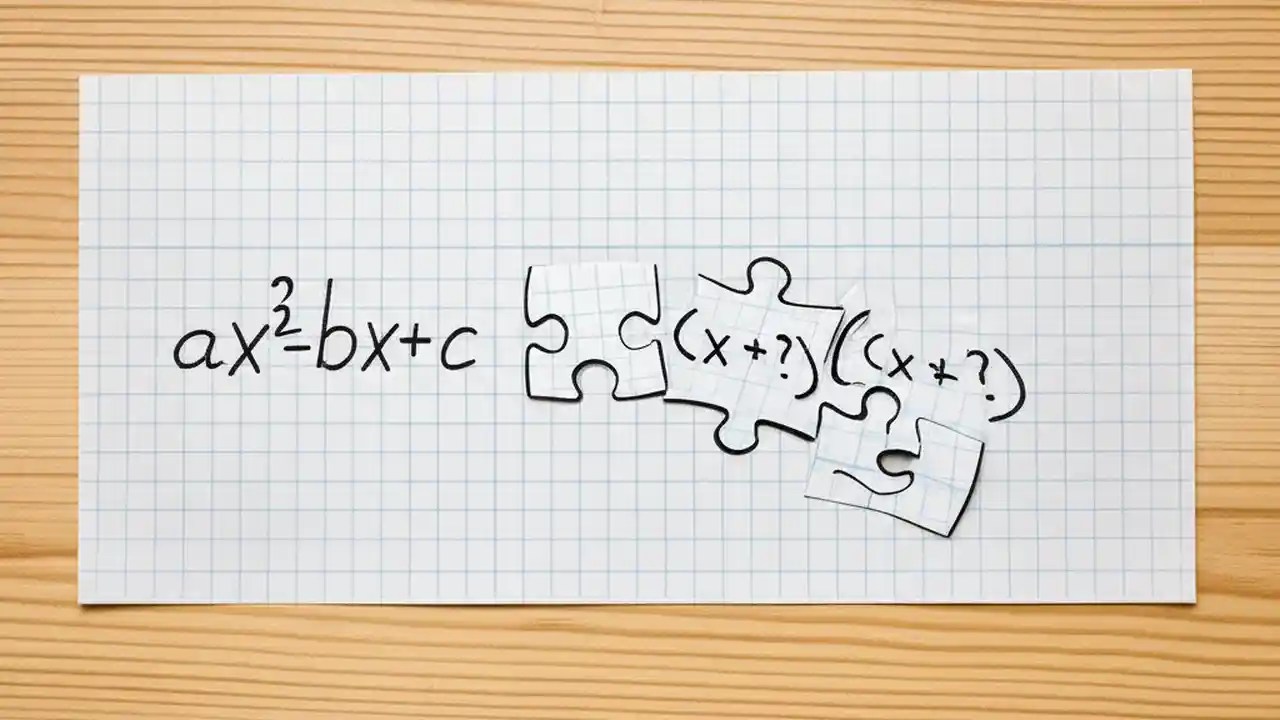 ax²-bx+c (x+?)((x+?)